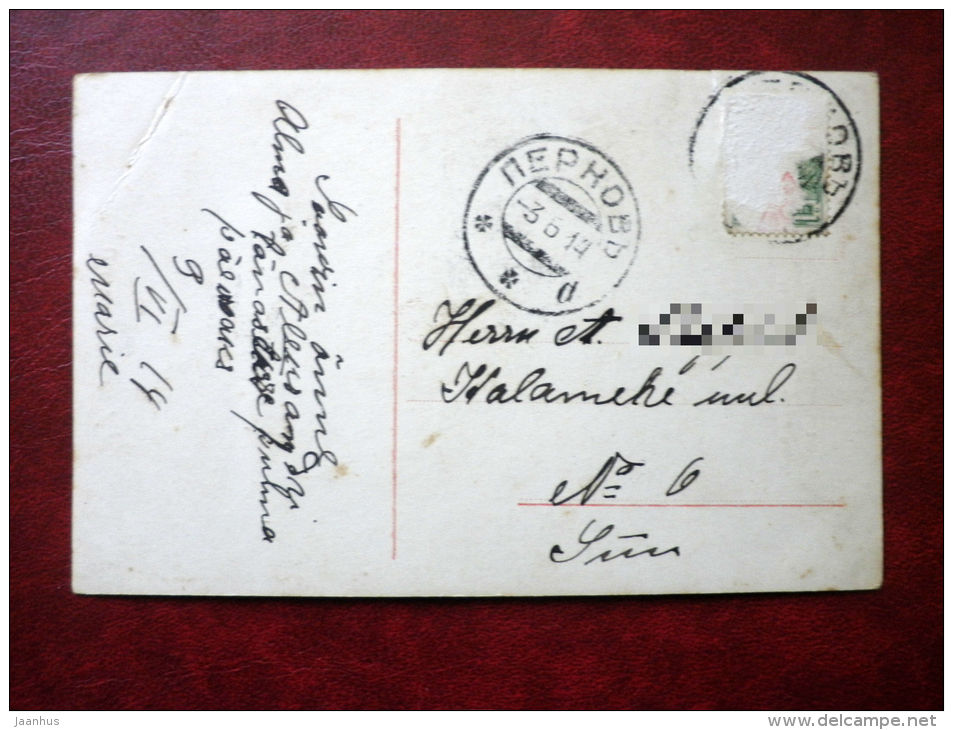 Soovin õnne
Alma ja Aleksandri
tänastuse pulma
päevaks
9/VI 14
Marie
ПЕРНОВЪ
-3 6 14
d
ОВЪ
Herrn A.
Kalameke uul.
№ 6
Siin
Jaanhus
www.delcampe.net